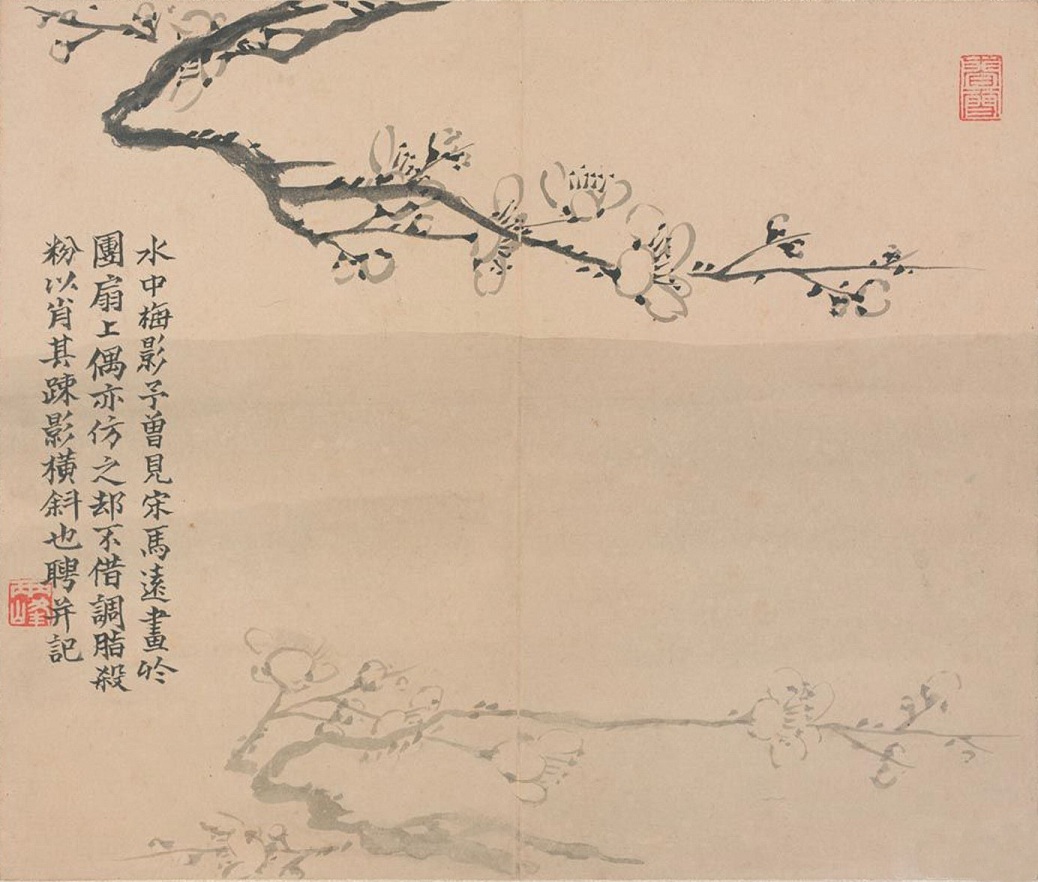 水中梅影予曾見宋馬遠畫於
團扇上偶亦仿之却不借調脂殺
粉以肖其踈影橫斜也聘并記
兩峰